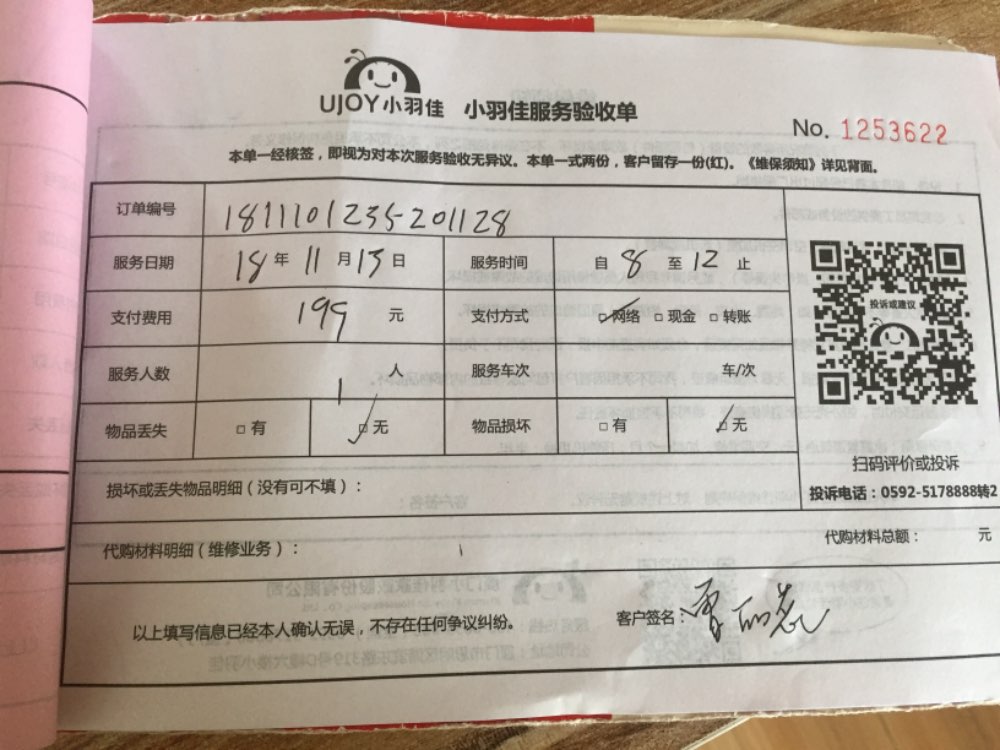 UJOY小羽佳 小羽佳服务验收单
No. 1253622
本单一经核签，即视为对本次服务验收无异议。本单一式两份，客户留存一份(红)。《维保须知》详见背面。
订单编号 1811101235201128
服务日期 18年11月15日 服务时间 自8至12止
支付费用 199 元 支付方式 ☑网络 □现金 □转账
服务人数 1 人 服务车次 车/次
物品丢失 □有 ☑无 物品损坏 □有 ☑无
投诉或建议
扫码评价或投诉
投诉电话：0592-5178888转2
损坏或丢失物品明细（没有可不填）：
代购材料明细（维修业务）： 代购材料总额： 元
以上填写信息已经本人确认无误，不存在任何争议纠纷。 客户签名：